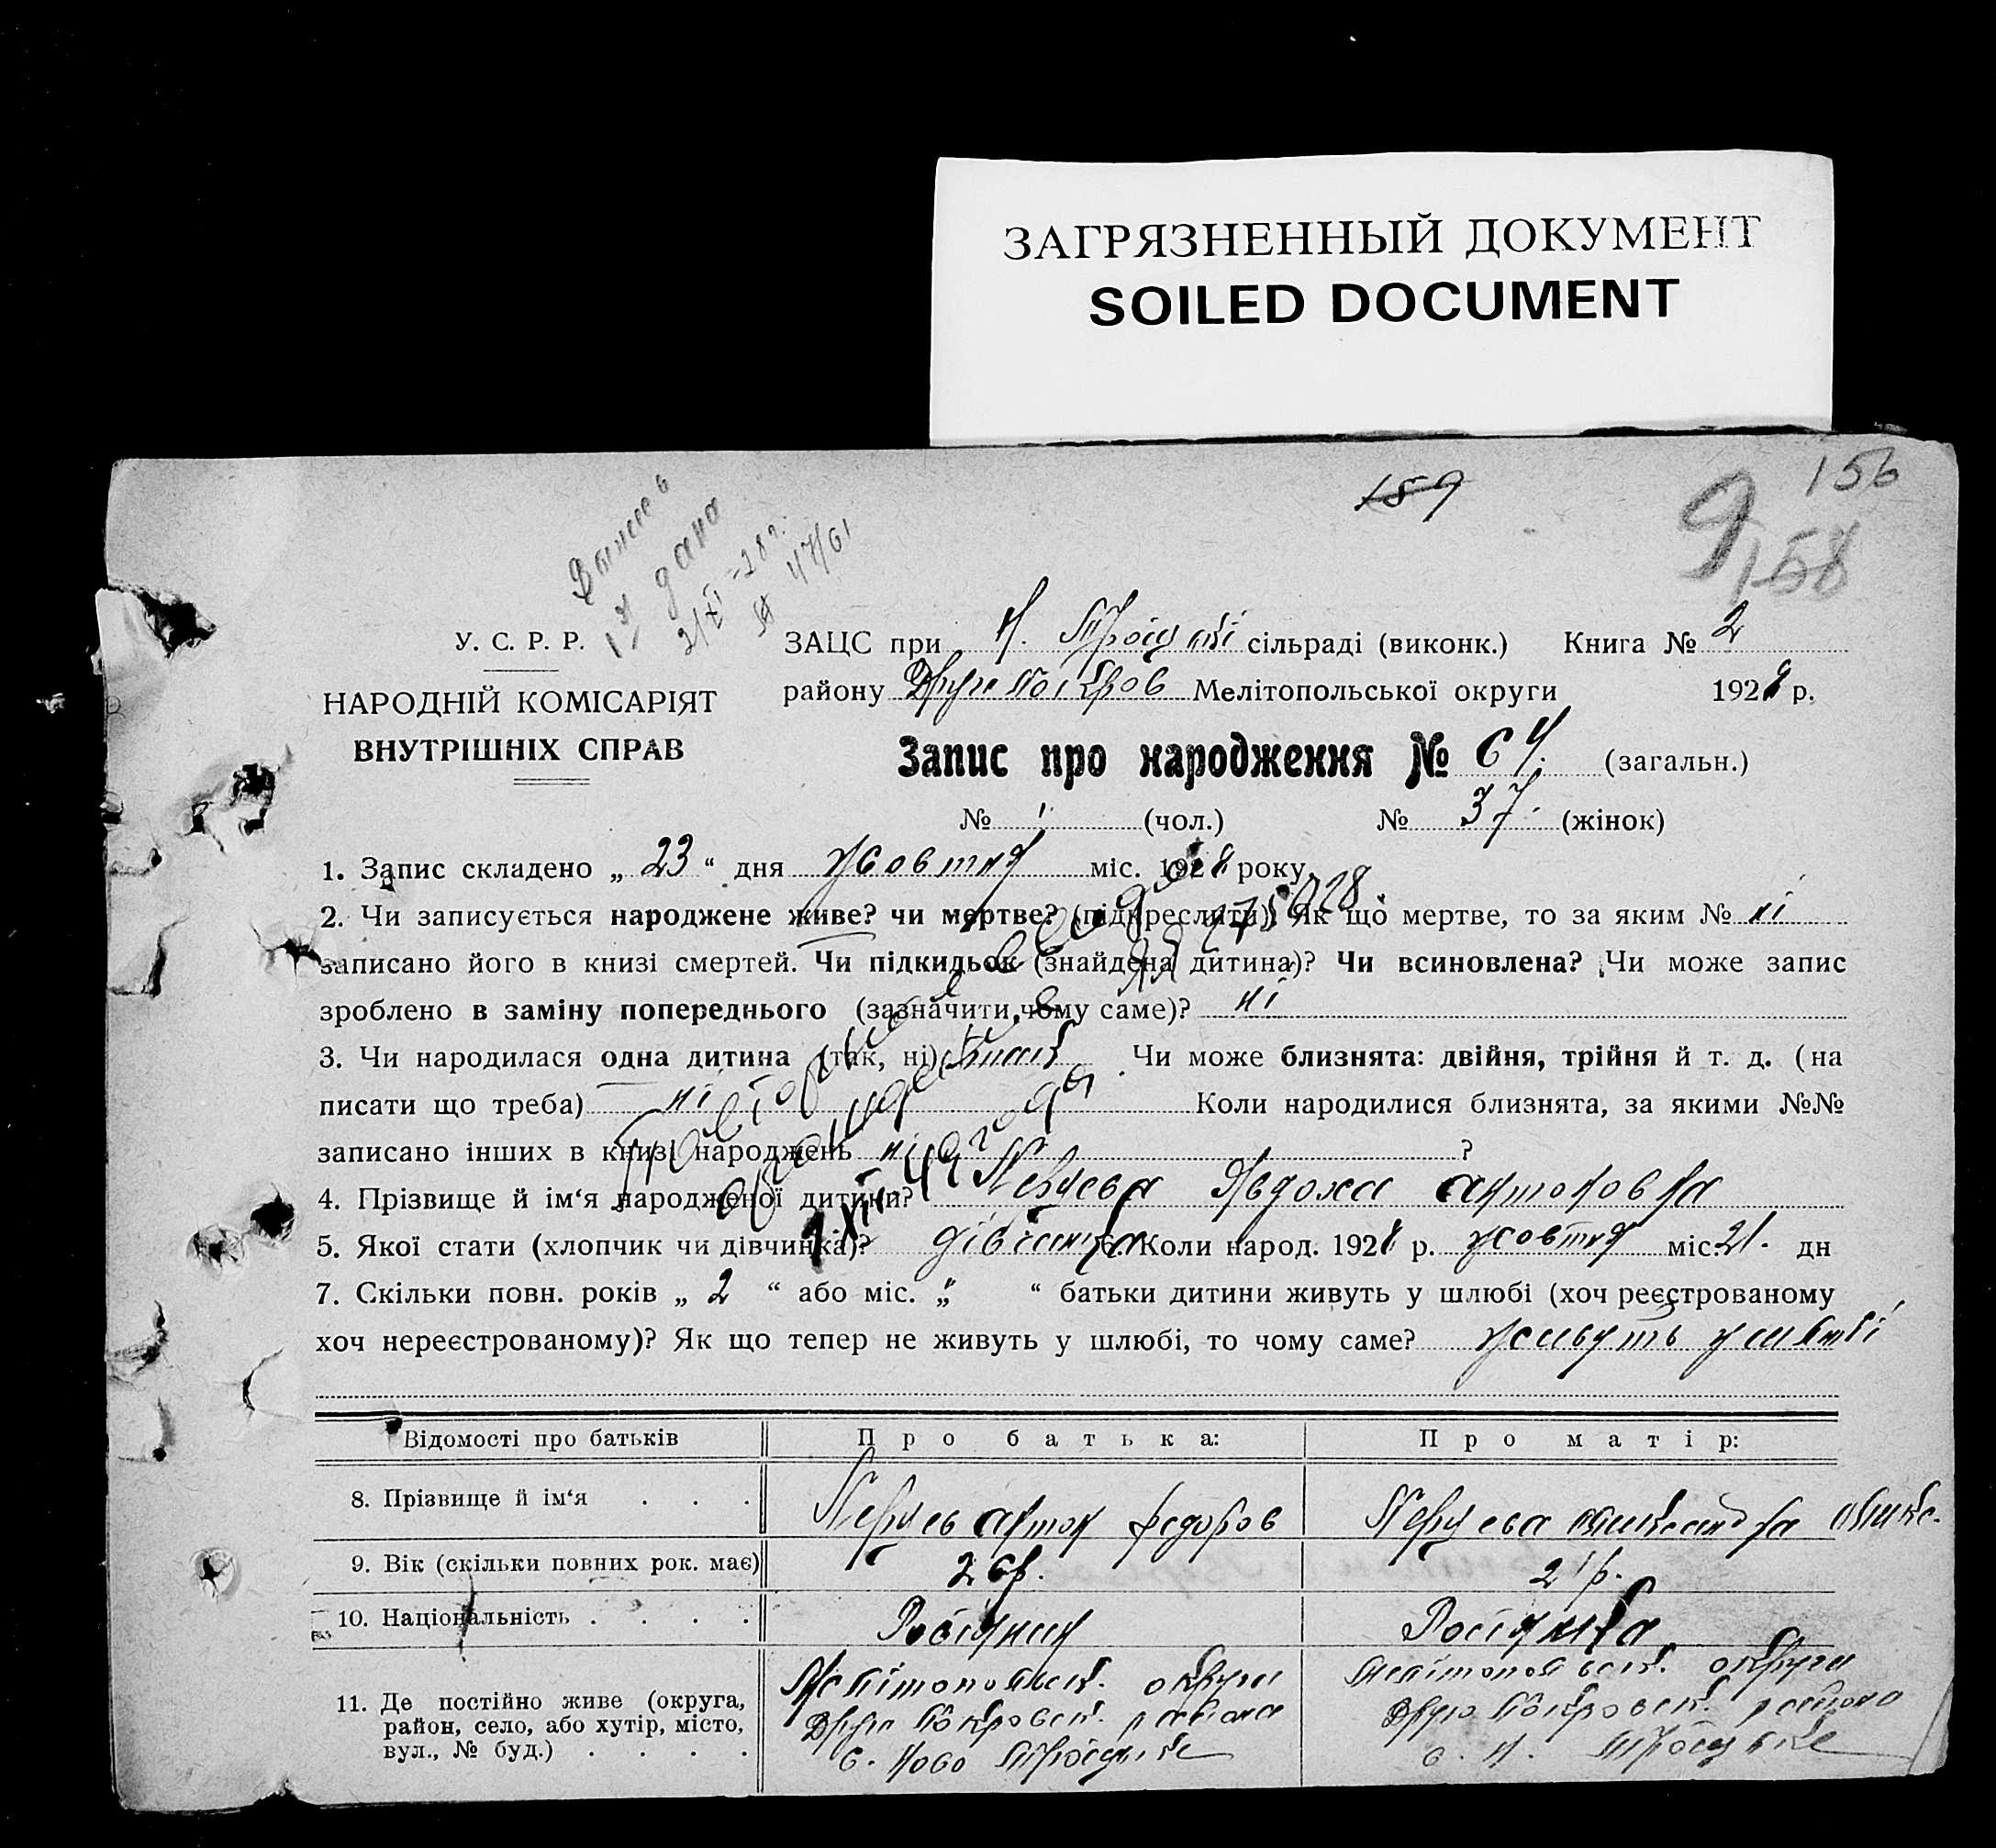 ЗАГРЯЗНЕННЫЙ ДОКУМЕНТ
SOILED DOCUMENT
159
156
9
158
дана
47/61
У. С. Р. Р.
НАРОДНІЙ КОМІСАРІЯТ
ВНУТРІШНІХ СПРАВ
ЗАЦС при Н. Троицкі сільраді (виконк.) Книга № 2
району Друго Покров Мелітопольської округи 1928 р.
Запис про народження № 64. (загальн.)
№ (чол.) № 37. (жінок)
1. Запис складено „ 23 “ дня жовтня міс. 1928 року.
2. Чи записується народжене живе? чи мертве? (підкреслити). Як що мертве, то за яким № ні
записано його в книзі смертей. Чи підкидьок (знайдена дитина)? Чи всиновлена? Чи може запис
зроблено в заміну попереднього (зазначити, чому саме)? ні
3. Чи народилася одна дитина (так, ні) так Чи може близнята: двійня, трійня й т. д. (на
писати що треба) ні Коли народилися близнята, за якими №№
записано інших в книзі народжень ні ?
4. Прізвище й ім‘я народженої дитини? Певцева Явдоха Антоновна
5. Якої стати (хлопчик чи дівчинка)? дівчинка 6. Коли народ. 1928 р. жовтня міс. 21. дн
7. Скільки повн. років „ 2 “ або міс. „ “ батьки дитини живуть у шлюбі (хоч реєстрованому
хоч нереєстрованому)? Як що тепер не живуть у шлюбі, то чому саме? живуть у шлюбі
Відомості про батьків Про батька: Про матір:
8. Прізвище й ім‘я . . . Певцев Антон Федоров Певцева
9. Вік (скільки повних рок. має) 26р. 21р.
10. Національність . . . . Росіянин Росіянка
11. Де постійно живе (округа, район, село, або хутір, місто, вул., № буд.) . . . .
Мелітопольськ. округи
Друго Покровськ. района
с. Ново Троицьке
Мелітопольськ. округи
Друго Покровськ. района
с. Н. Троицьке